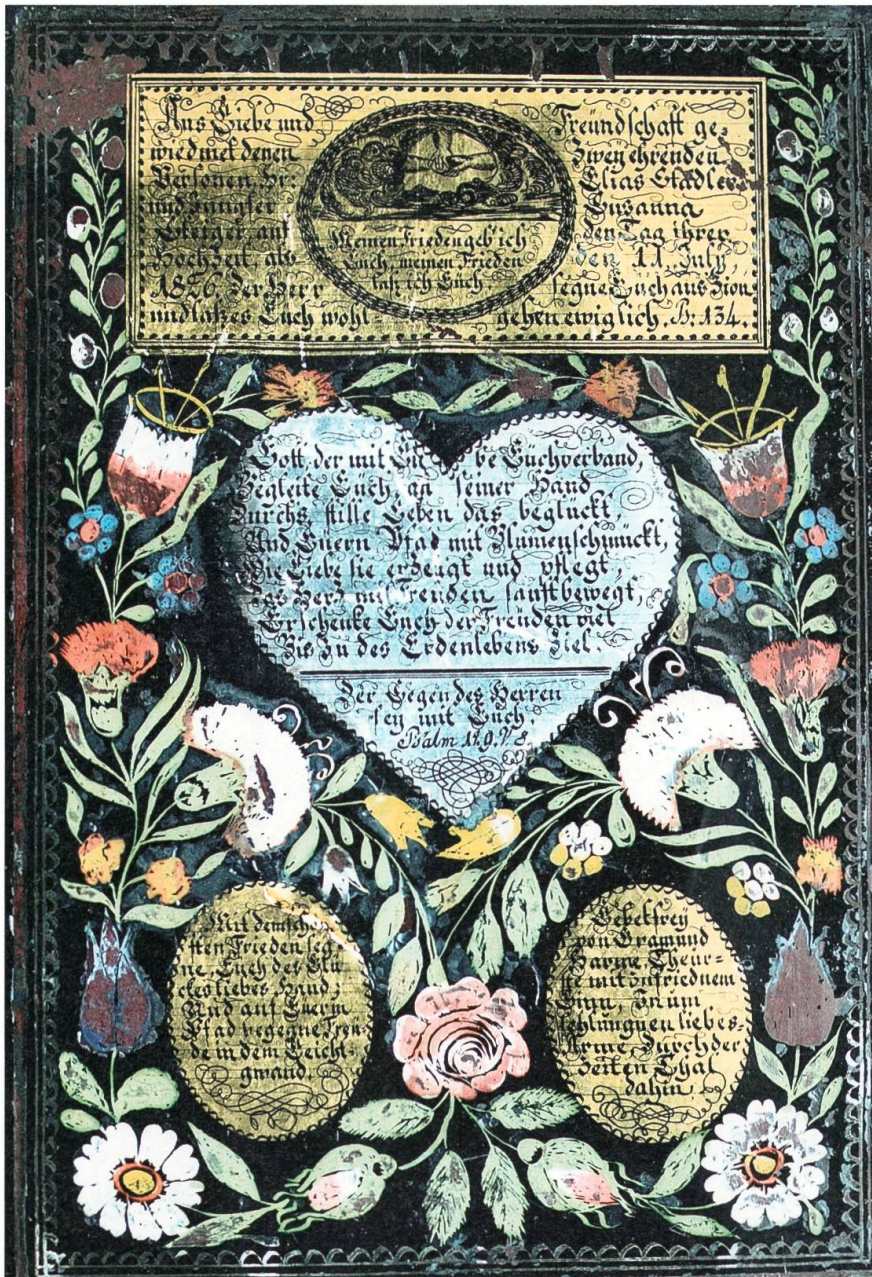 Aus Liebe und Freündschaft ge-
wiedmet denen Zweÿ ehrenden
Persohnen, Hr: Elias Stadler
und Jungfer Susanna
Steiger, auf den Tag ihrer
Hochzeit, als den 11 July,
1826 Der Herr segne Euch aus Zion
und laß es Euch wohl gehen ewiglich. Ps: 134.
Meinen Frieden geb' ich
Euch, meinen Frieden
laß ich Euch
Gott, der mit be Euch verband,
Begleite Euch an seiner Hand
Durchs stille Leben das beglückt,
Und Euern Pfad mit Blumen schmückt,
Die Liebe sie erzeugt und pflegt,
Das Herz mit Freuden sanft bewegt,
Er schenke Euch der Freüden viel
Bis zu des Erdenlebens Ziel.
Der Segen des Herren
sey mit Euch,
Psalm 129. V. 8.
Mit dem schö
sten Frieden seg
ne, Euch des Glü
ckes liebes Hand;
Und auf Euerm
Pfad begegne Freu-
de in dem Leicht-
gwand.
Lebet frey
von Gram und
Harme Theur-
ste mit zufriednem
Sinn, In um
schlungnen liebes-
Arme, Durch der
Zeiten Thal
dahin